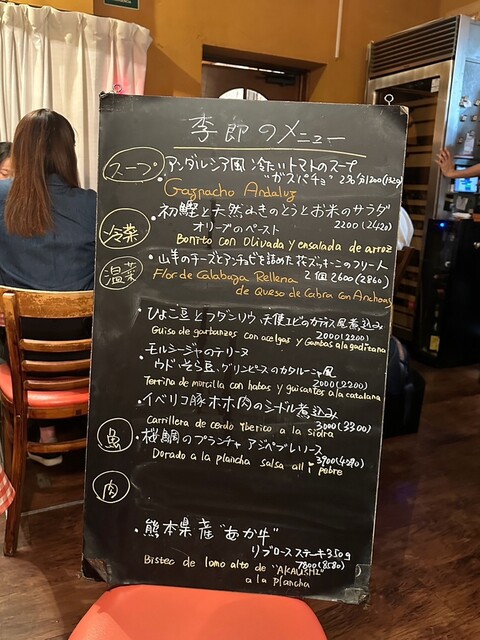 季節のメニュー
スープ
・アンダルシア風 冷たいトマトのスープ
"ガスパチョ" 2名分1200(1320)
Gazpacho Andaluz
冷菜
・初鰹と天然ふきのとうとお米のサラダ
オリーブのペースト 2200(2420)
Bonito con Olivada y ensalada de arroz
温菜
・山羊のチーズとアンチョビを詰めた花ズッキーニのフリート
Flor de Calabaza Rellena 2個2600(2860)
de Queso de Cabra con Anchoas
・ひよこ豆とフダンソウ、天使エビのカディス風煮込み
2000(2200)
Guiso de garbanzos con acelgas y Gambas a la gaditana
・モルシージャのテリーヌ
ウド、そら豆、グリンピースのカタルーニャ風
2000(2200)
Terrina de morcilla con habas y guisantes a la catalana
・イベリコ豚ホホ肉のシードル煮込み
3000(3300)
Carrillera de cerdo Iberico a la sidra
魚
・桜鯛のプランチャ アジペブレソース
3900(4290)
Dorado a la plancha salsa all i pebre
肉
・熊本県産"あか牛"
リブロースステーキ350g
7800(8580)
Bistec de lomo alto de "AKAUSHI"
a la plancha